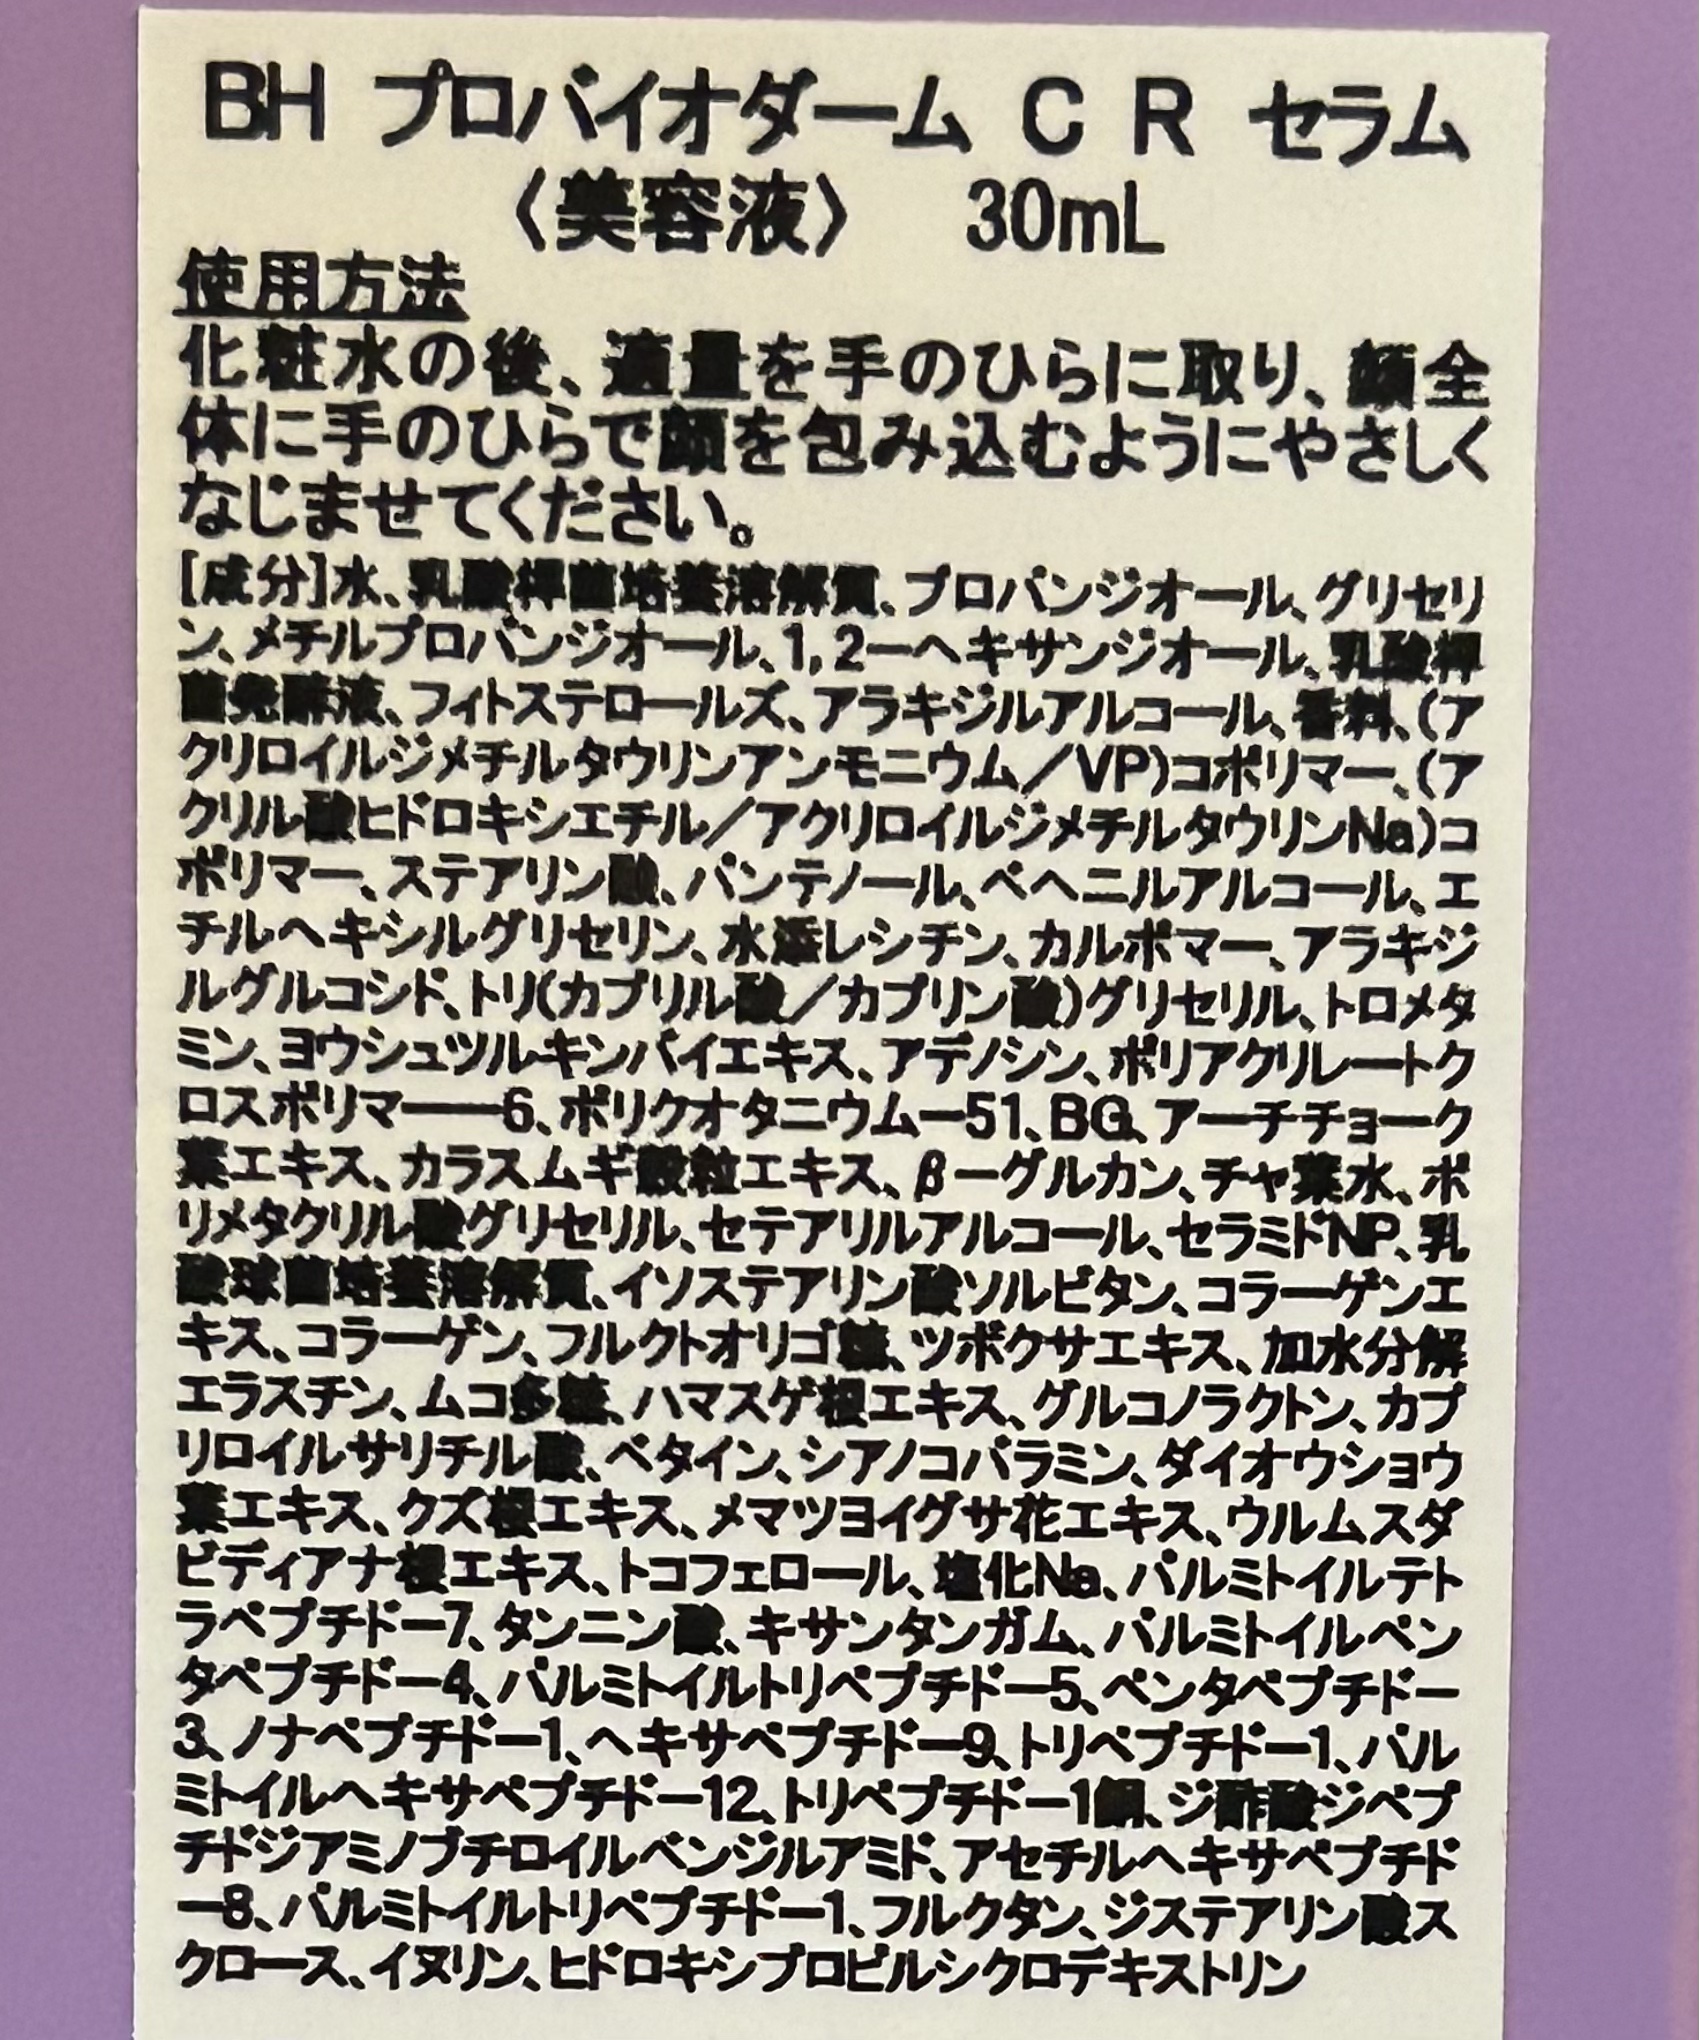 BH プロバイオダーム CR セラム
〈美容液〉 30mL
使用方法
化粧水の後、適量を手のひらに取り、顔全
体に手のひらで顔を包み込むようにやさしく
なじませてください。
[成分]水、乳酸桿菌培養溶解質、プロパンジオール、グリセリ
ン、メチルプロパンジオール、1,2ーヘキサンジオール、乳酸桿
菌発酵液、フィトステロールズ、アラキジルアルコール、香料、(ア
クリロイルジメチルタウリンアンモニウム/VP)コポリマー、(ア
クリル酸ヒドロキシエチル/アクリロイルジメチルタウリンNa)コ
ポリマー、ステアリン酸、パンテノール、ベヘニルアルコール、エ
チルヘキシルグリセリン、水添レシチン、カルボマー、アラキジ
ルグルコシド、トリ(カプリル酸/カプリン酸)グリセリル、トロメタ
ミン、ヨウシュツルキンバイエキス、アデノシン、ポリアクリレートク
ロスポリマーー6、ポリクオタニウムー51、BG、アーチチョーク
葉エキス、カラスムギ穀粒エキス、βーグルカン、チャ葉水、ポ
リメタクリル酸グリセリル、セテアリルアルコール、セラミドNP、乳
酸球菌培養溶解質、イソステアリン酸ソルビタン、コラーゲンエ
キス、コラーゲン、フルクトオリゴ糖、ツボクサエキス、加水分解
エラスチン、ムコ多糖、ハマスゲ根エキス、グルコノラクトン、カプ
リロイルサリチル酸、ベタイン、シアノコバラミン、ダイオウショウ
葉エキス、クズ根エキス、メマツヨイグサ花エキス、ウルムスダ
ビディアナ根エキス、トコフェロール、塩化Na、パルミトイルテト
ラペプチドー7、タンニン酸、キサンタンガム、パルミトイルペン
タペプチドー4、パルミトイルトリペプチドー5、ペンタペプチドー
3、ノナペプチドー1、ヘキサペプチドー9、トリペプチドー1、パル
ミトイルヘキサペプチドー12、トリペプチドー1銅、ジ酢酸ジペプ
チドジアミノブチロイルベンジルアミド、アセチルヘキサペプチド
ー8、パルミトイルトリペプチドー1、フルクタン、ジステアリン酸ス
クロース、イヌリン、ヒドロキシプロピルシクロデキストリン